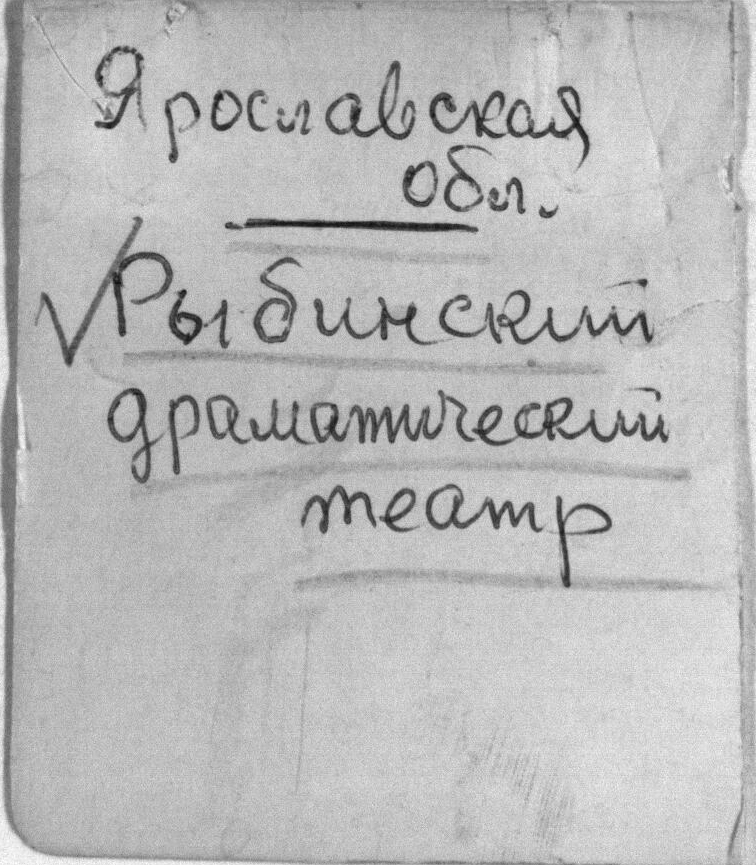 Ярославская
обл.
Рыбинский
драматический
театр